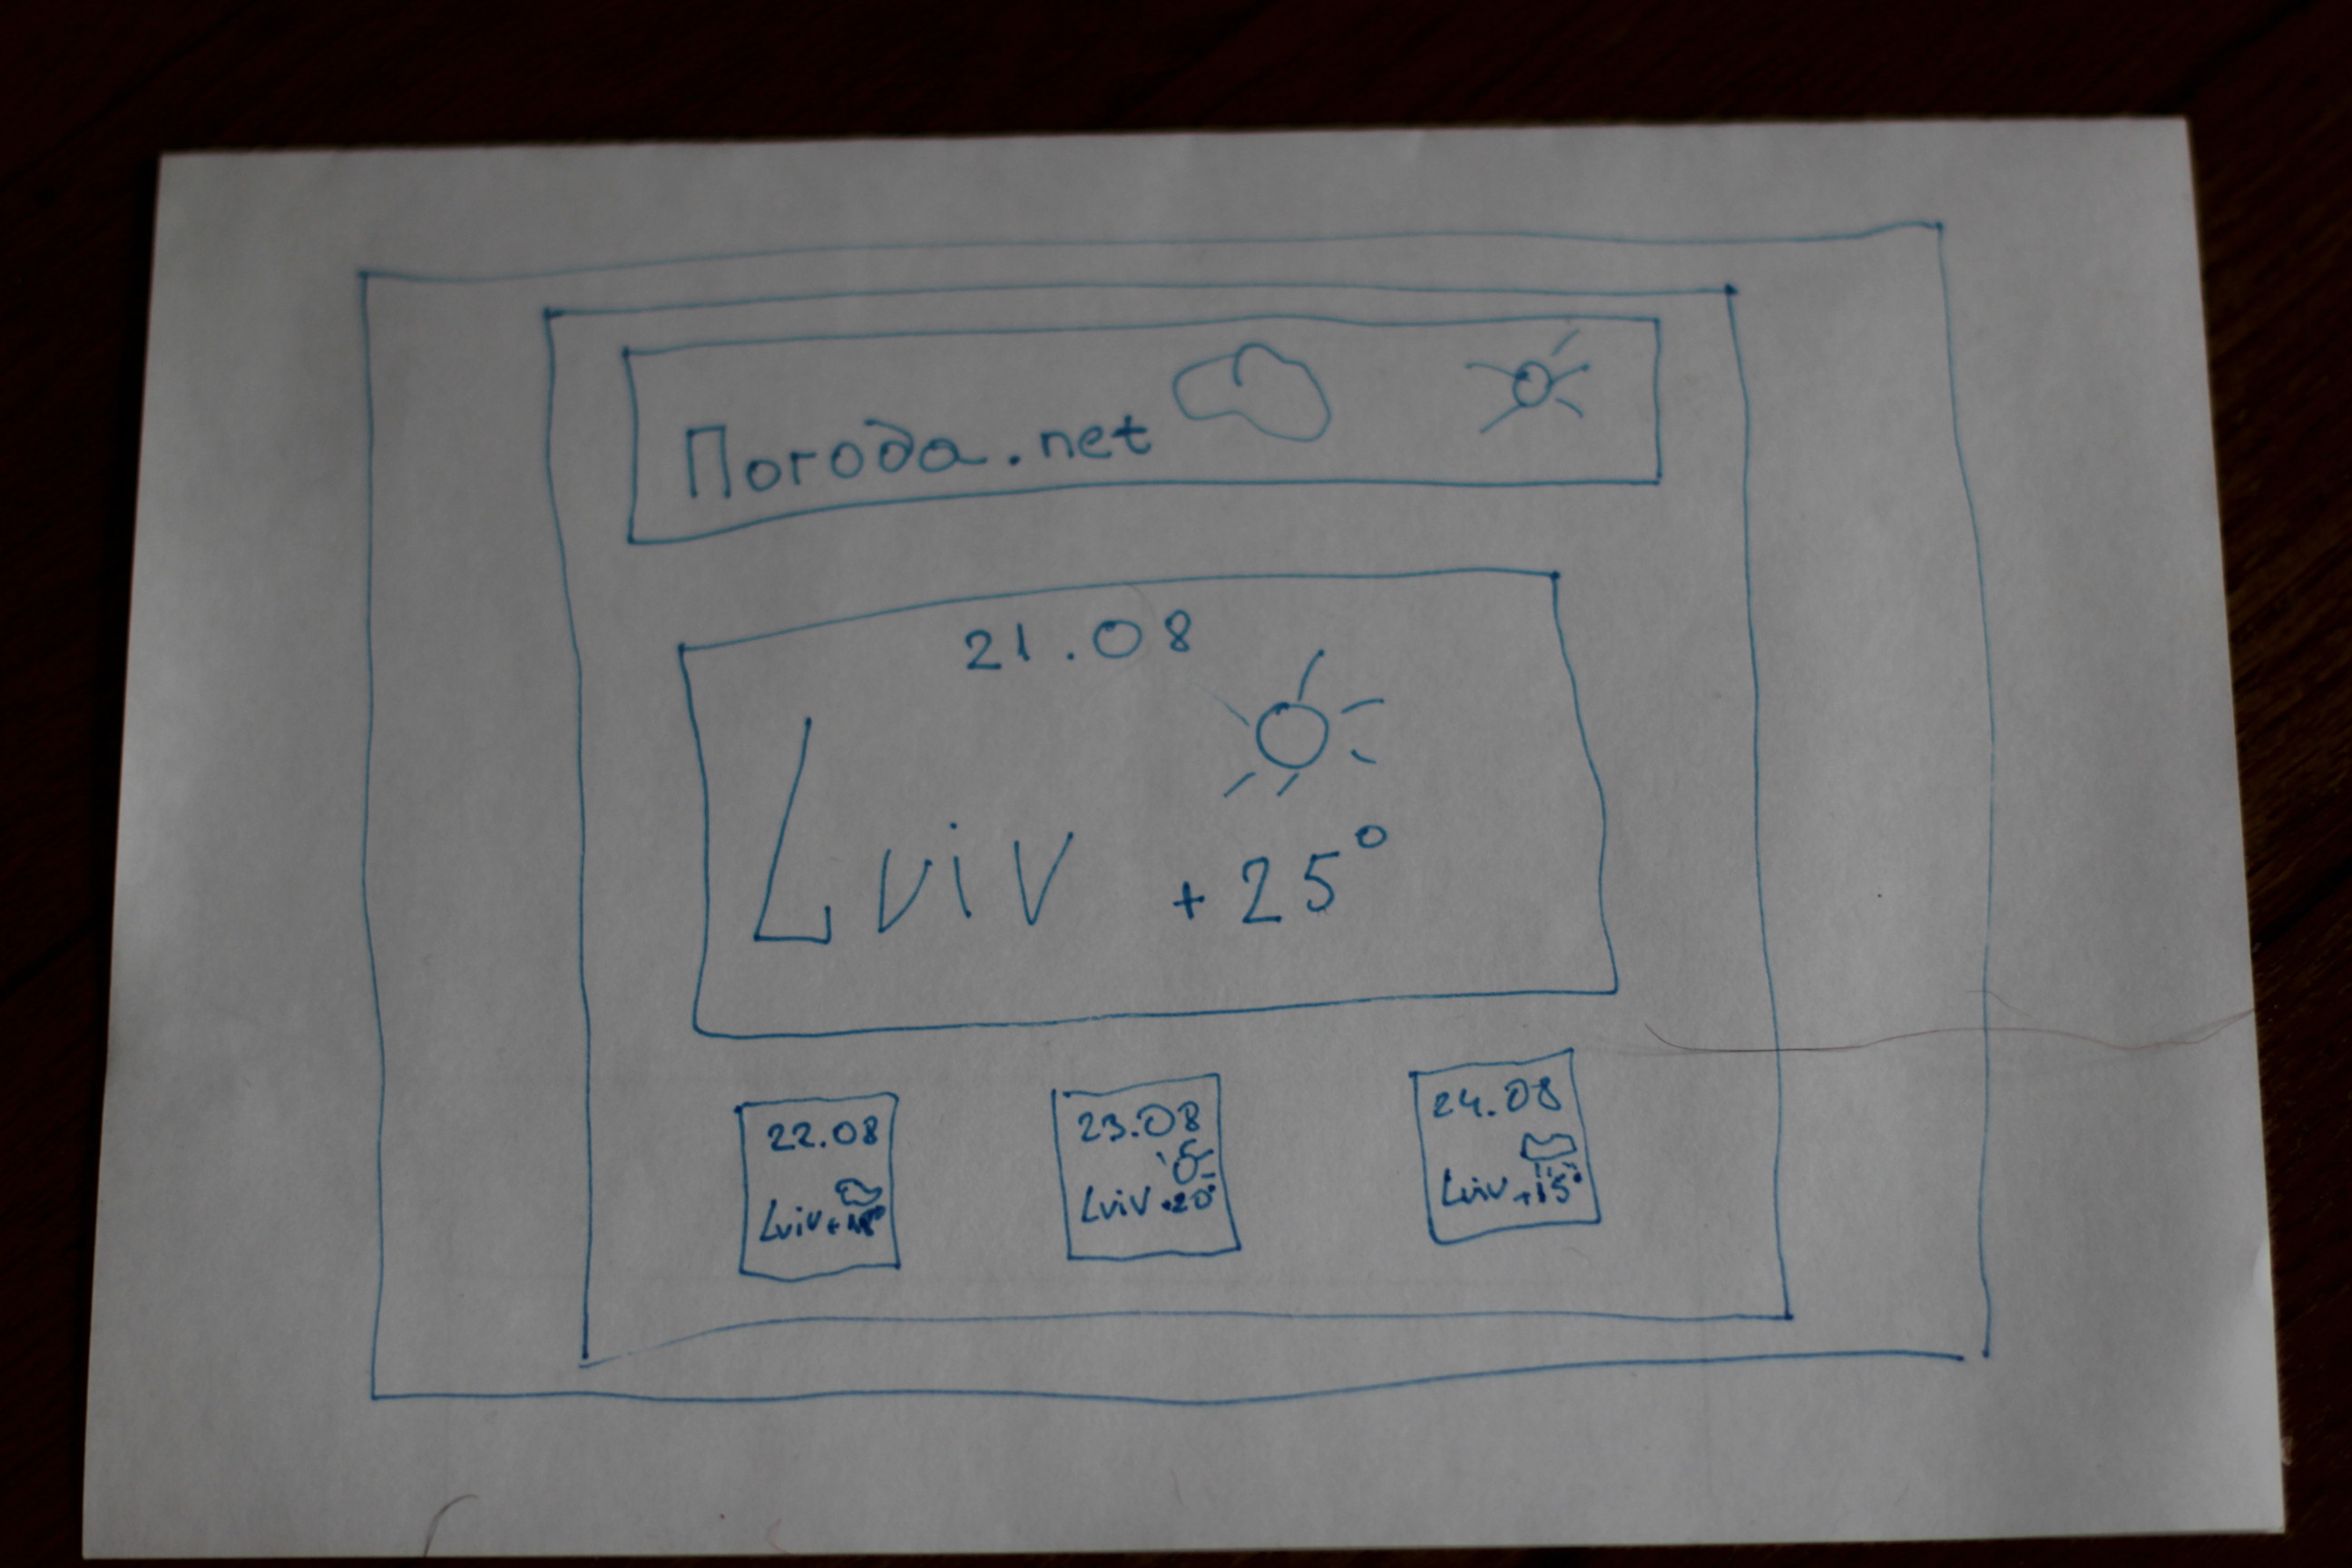 Погода.net
21.08
Lviv +25°
22.08
Lviv
23.08
Lviv +20°
24.08
Lviv +15°